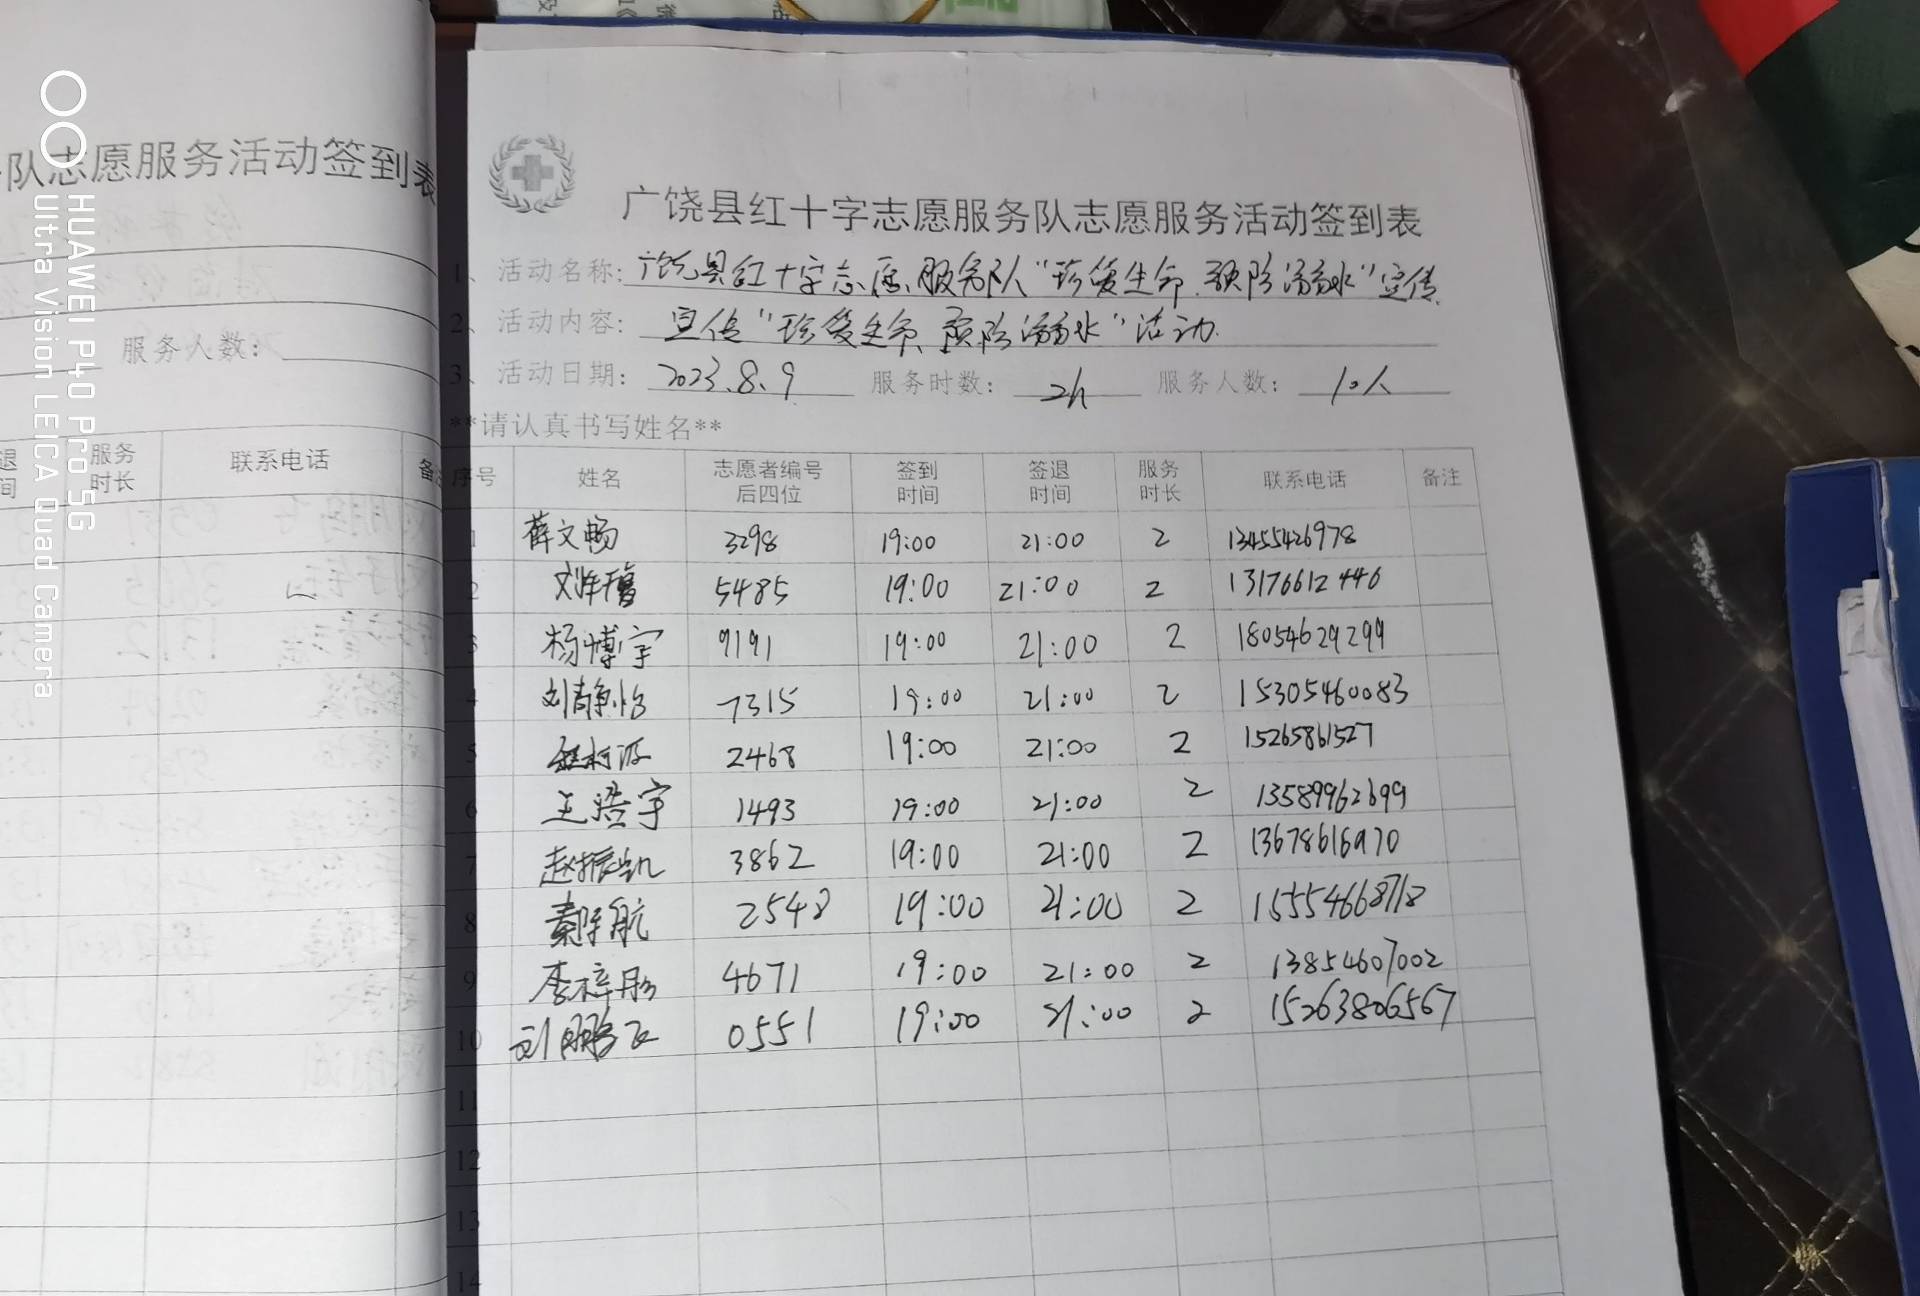 队志愿服务活动签到表
服务人数：
服务时长 联系电话
HUAWEI P40 Pro 5G
Ultra Vision LEICA Quad Camera
广饶县红十字志愿服务队志愿服务活动签到表
1、活动名称：广饶县红十字志愿服务队“珍爱生命、预防溺水”宣传
2、活动内容：宣传“珍爱生命、预防溺水”活动.
3、活动日期：2023.8.9 服务时数：2h 服务人数：10人
**请认真书写姓名**
序号 姓名 志愿者编号后四位 签到时间 签退时间 服务时长 联系电话 备注
1 薛文畅 3298 19:00 21:00 2 13455426978
2 5485 19:00 21:00 2 13176612446
3 杨博宇 9191 19:00 21:00 2 18054629299
4 刘静怡 7315 19:00 21:00 2 15305460083
5 2468 19:00 21:00 2 15265861527
6 王浩宇 1493 19:00 21:00 2 13589962699
7 赵振凯 3862 19:00 21:00 2 13678616970
8 秦宇航 2548 19:00 21:00 2 15554668718
9 李梓彤 4671 19:00 21:00 2 13854607002
10 刘鹏飞 0551 19:00 21:00 2 15263806567
11
12
13
14